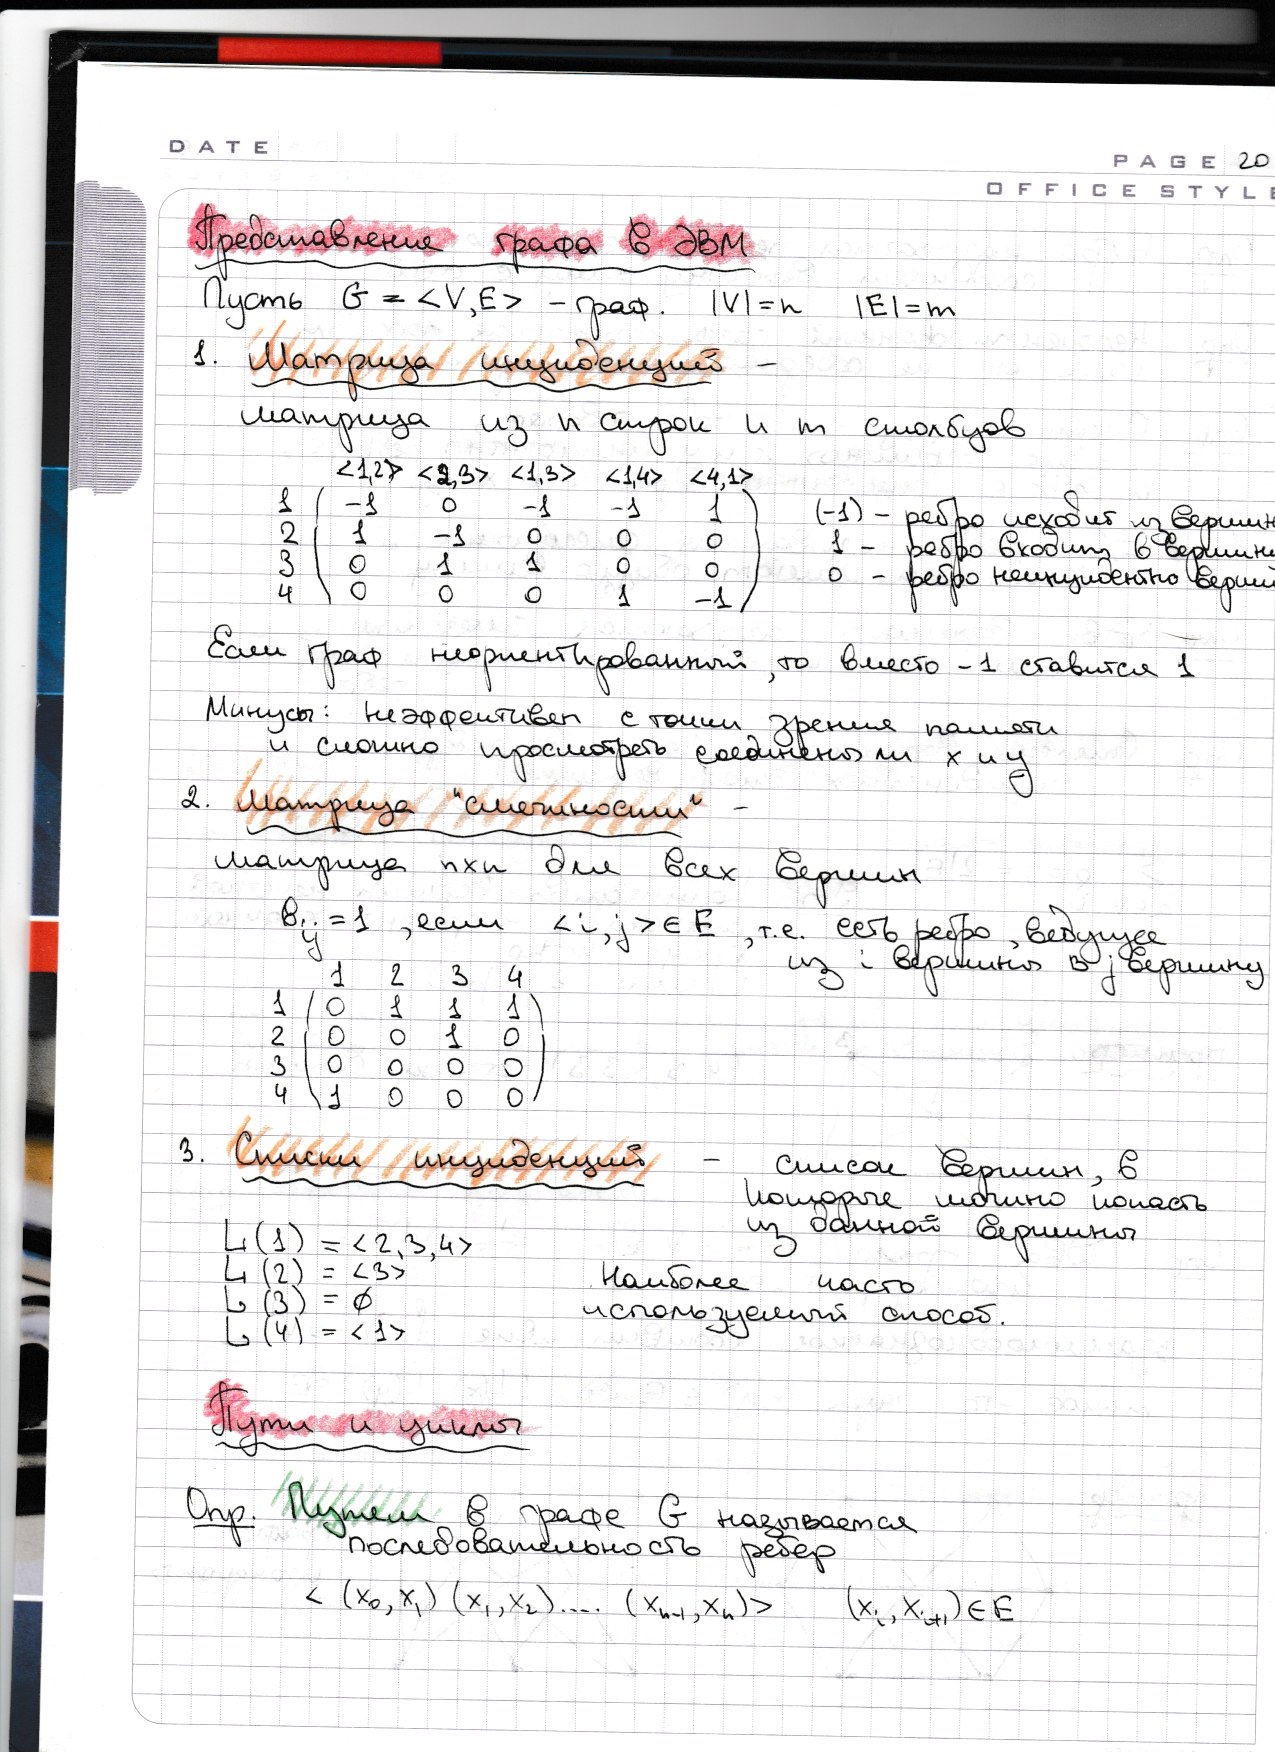 DATE
PAGE 20
OFFICE STYLE
Представление графа в ЭВМ
Пусть G = <V,E> – граф. |V|=n |E|=m
1. Матрица инциденций –
матрица из n строк и m столбцов
<1,2> <2,3> <1,3> <1,4> <4,1>
1 ( -1 0 -1 -1 1 ) (-1) – ребро исходит из вершин
2 1 -1 0 0 0 1 – ребро входит в вершин
3 0 1 1 0 0 0 – ребро неинцидентно верши
4 0 0 0 1 -1
Если граф неориентированный, то вместо -1 ставится 1
Минусы: неэффективен с точки зрения памяти
и сложно просмотреть соединены ли x и y
2. Матрица "смежности" –
матрица nxn для всех вершин
bij = 1, если <i,j> ∈ E, т.е. есть ребро, ведущее
из i вершины в j вершину
1 2 3 4
1 ( 0 1 1 1 )
2 0 0 1 0
3 0 0 0 0
4 1 0 0 0
3. Списки инциденций – список вершин, в
которые можно попасть
из данной вершины
L(1) = <2,3,4>
L(2) = <3> Наиболее часто
L(3) = ∅ используемый способ.
L(4) = <1>
Пути и циклы
Опр. Путем в графе G называется
последовательность ребер
< (x₀,x₁) (x₁,x₂).... (xₙ₋₁,xₙ)> (xᵢ, xᵢ₊₁) ∈ E